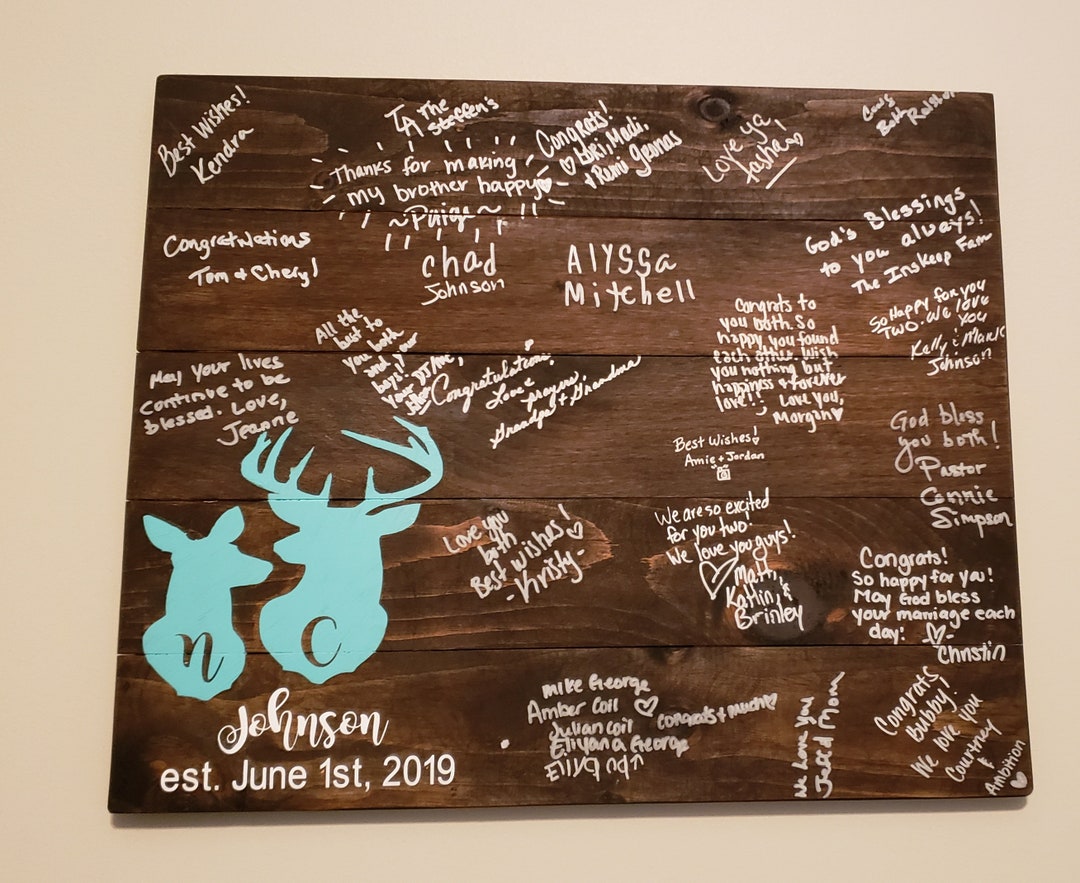 Best Wishes!
Kendra
The
Steffen's
Thanks for making
my brother happy
~Paige~ !!
Congrats!
Madi,
+ Remi
Love ya
Tasha
God's Blessings
to you always!
The Inskeep Fam
Congratulations
Tom & Cheryl
Chad
Johnson
Alyssa
Mitchell
So Happy for you
TWO. We love
you
Kelly & Mark
Johnson
All the
best to
you both
and your
boys!
Congratulations,
Love &
prayers,
Grandpa + Grandma
Congrats to
you both. So
happy you found
each other. Wish
you nothing but
happiness & forever
love!! Love you,
Morgan
May your lives
continue to be
blessed. Love,
Jeanne
God bless
you both!
Pastor
Connie
Simpson
Best Wishes!
Amie + Jordan
Love you
both
Best Wishes!
-Kristy-
We are so excited
for you two.
We love you guys!
Matt,
Katlin, &
Brinley
Congrats!
So happy for you!
May God bless
your marriage each
day!
Christin
n C
Johnson
est. June 1st, 2019
Mike George
Amber Coil
Julian Coil
Eliyana George
Congrats + much
We love you
Mom
Congrats
Bubby!
We love you
Courtney
&
Ambition